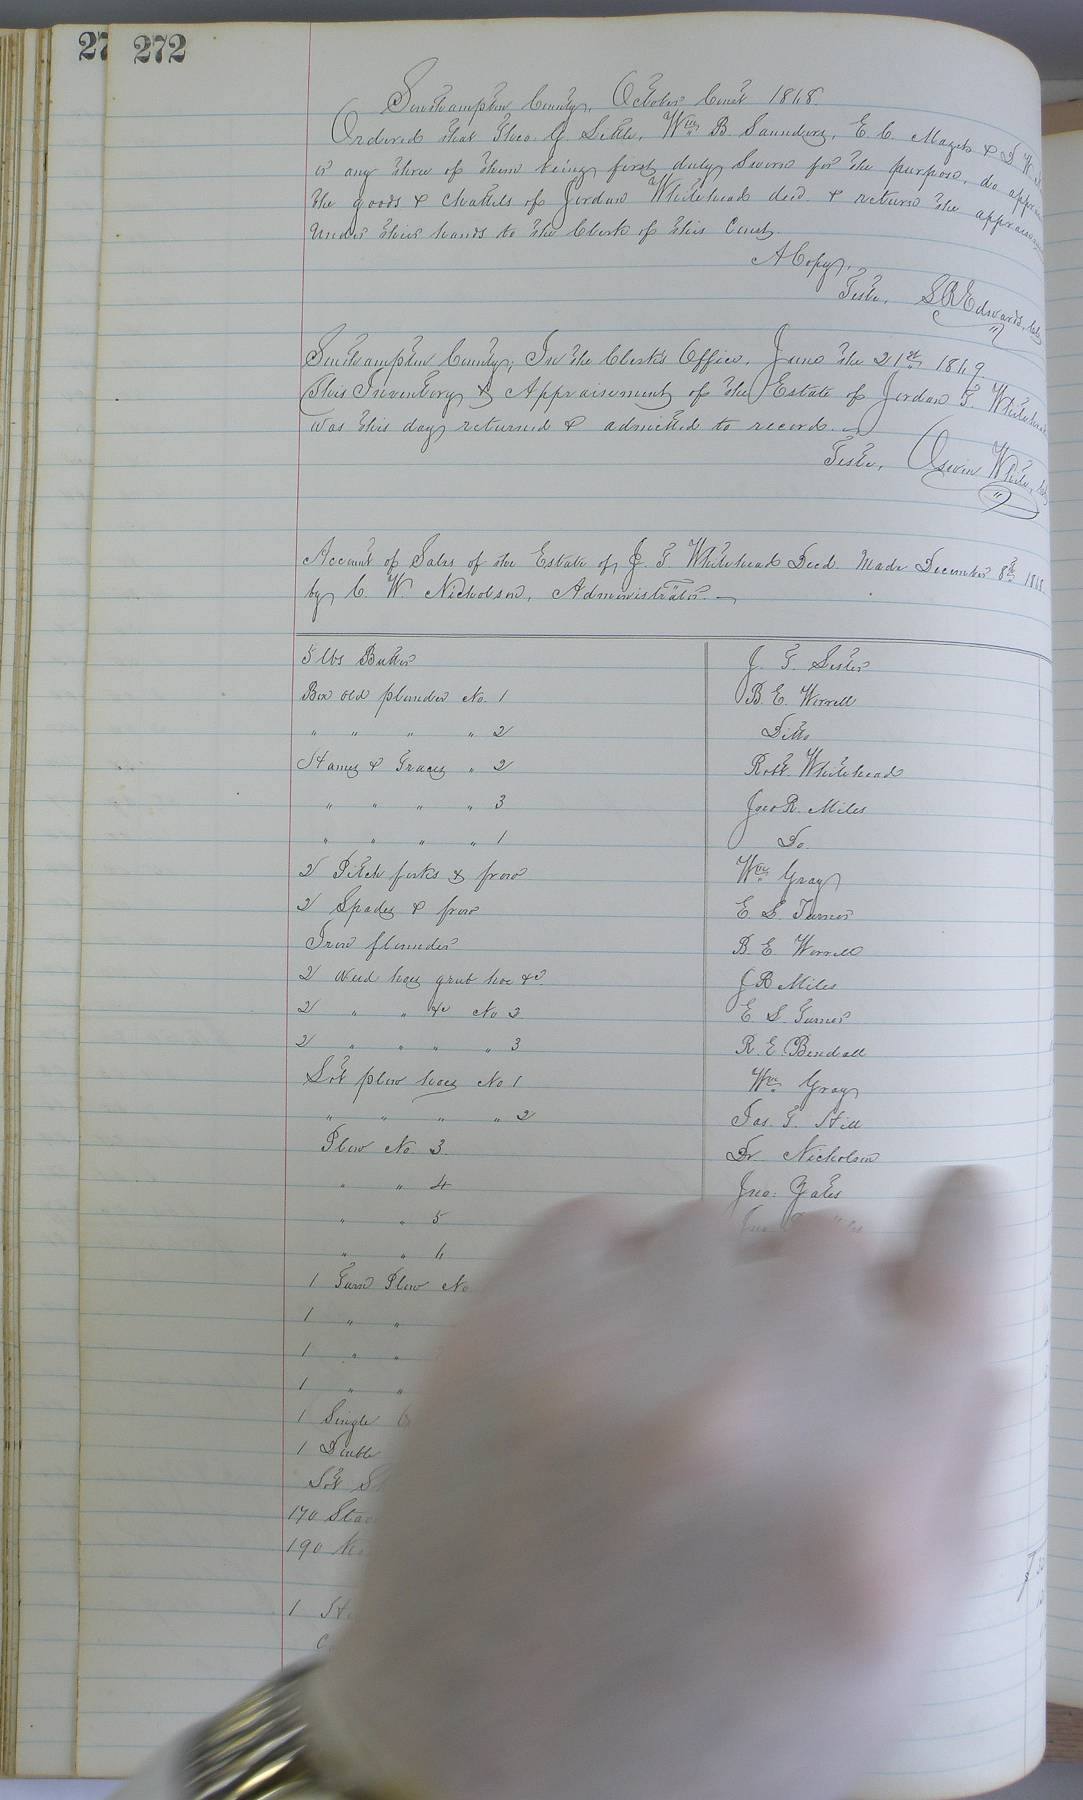 27 272
Southampton County, October Court 1868.
Ordered that Theo. G. Little, Wm B. Saunders, E. C. Magets & D. W.
or any three of them being first duly Sworn for the purpose, do
the goods & chattels of Jordan Whitehead decd & return the
under their hands to the Clerk of this Court.
A Copy,
Teste, S R Edwards, Clk
Southampton County; In the Clerk's Office, June the 21st 1869
This Inventory & Appraisement of the Estate of Jordan T. Whitehead
was this day returned & admitted to record.
Teste, Oswin White, Clk
Account of Sales of the Estate of J. T. Whitehead Decd Made December 8th 1868
by C. W. Nicholson, Administrator.
5 lbs Butter J. T.
Box old plunder No. 1 B. E. Worrell
" " " " 2 Ditto
Hames & Traces " 2 Robt. Whitehead
" " " " 3 Jno R. Miles
" " " " 1 Do
2 Pitch forks & frow Wm Gray
2 Spades & frow E S Turner
Iron B. E. Worrell
2 Weed hoes grub hoe &c J R Miles
2 " " &c No 2 E S. Turner
2 " " " " 3 R. E. Bendall
Lot plow hoes No 1 Wm Gray
" " " " 2 Jas. T. Hill
Plow No 3 Dr. Nicholson
" " 4 Jno: Yates
" " 5
" " 6
1 Turn Plow No
1 " "
1 " "
1 " "
1 Single
1 Double
Lot
170
190
1